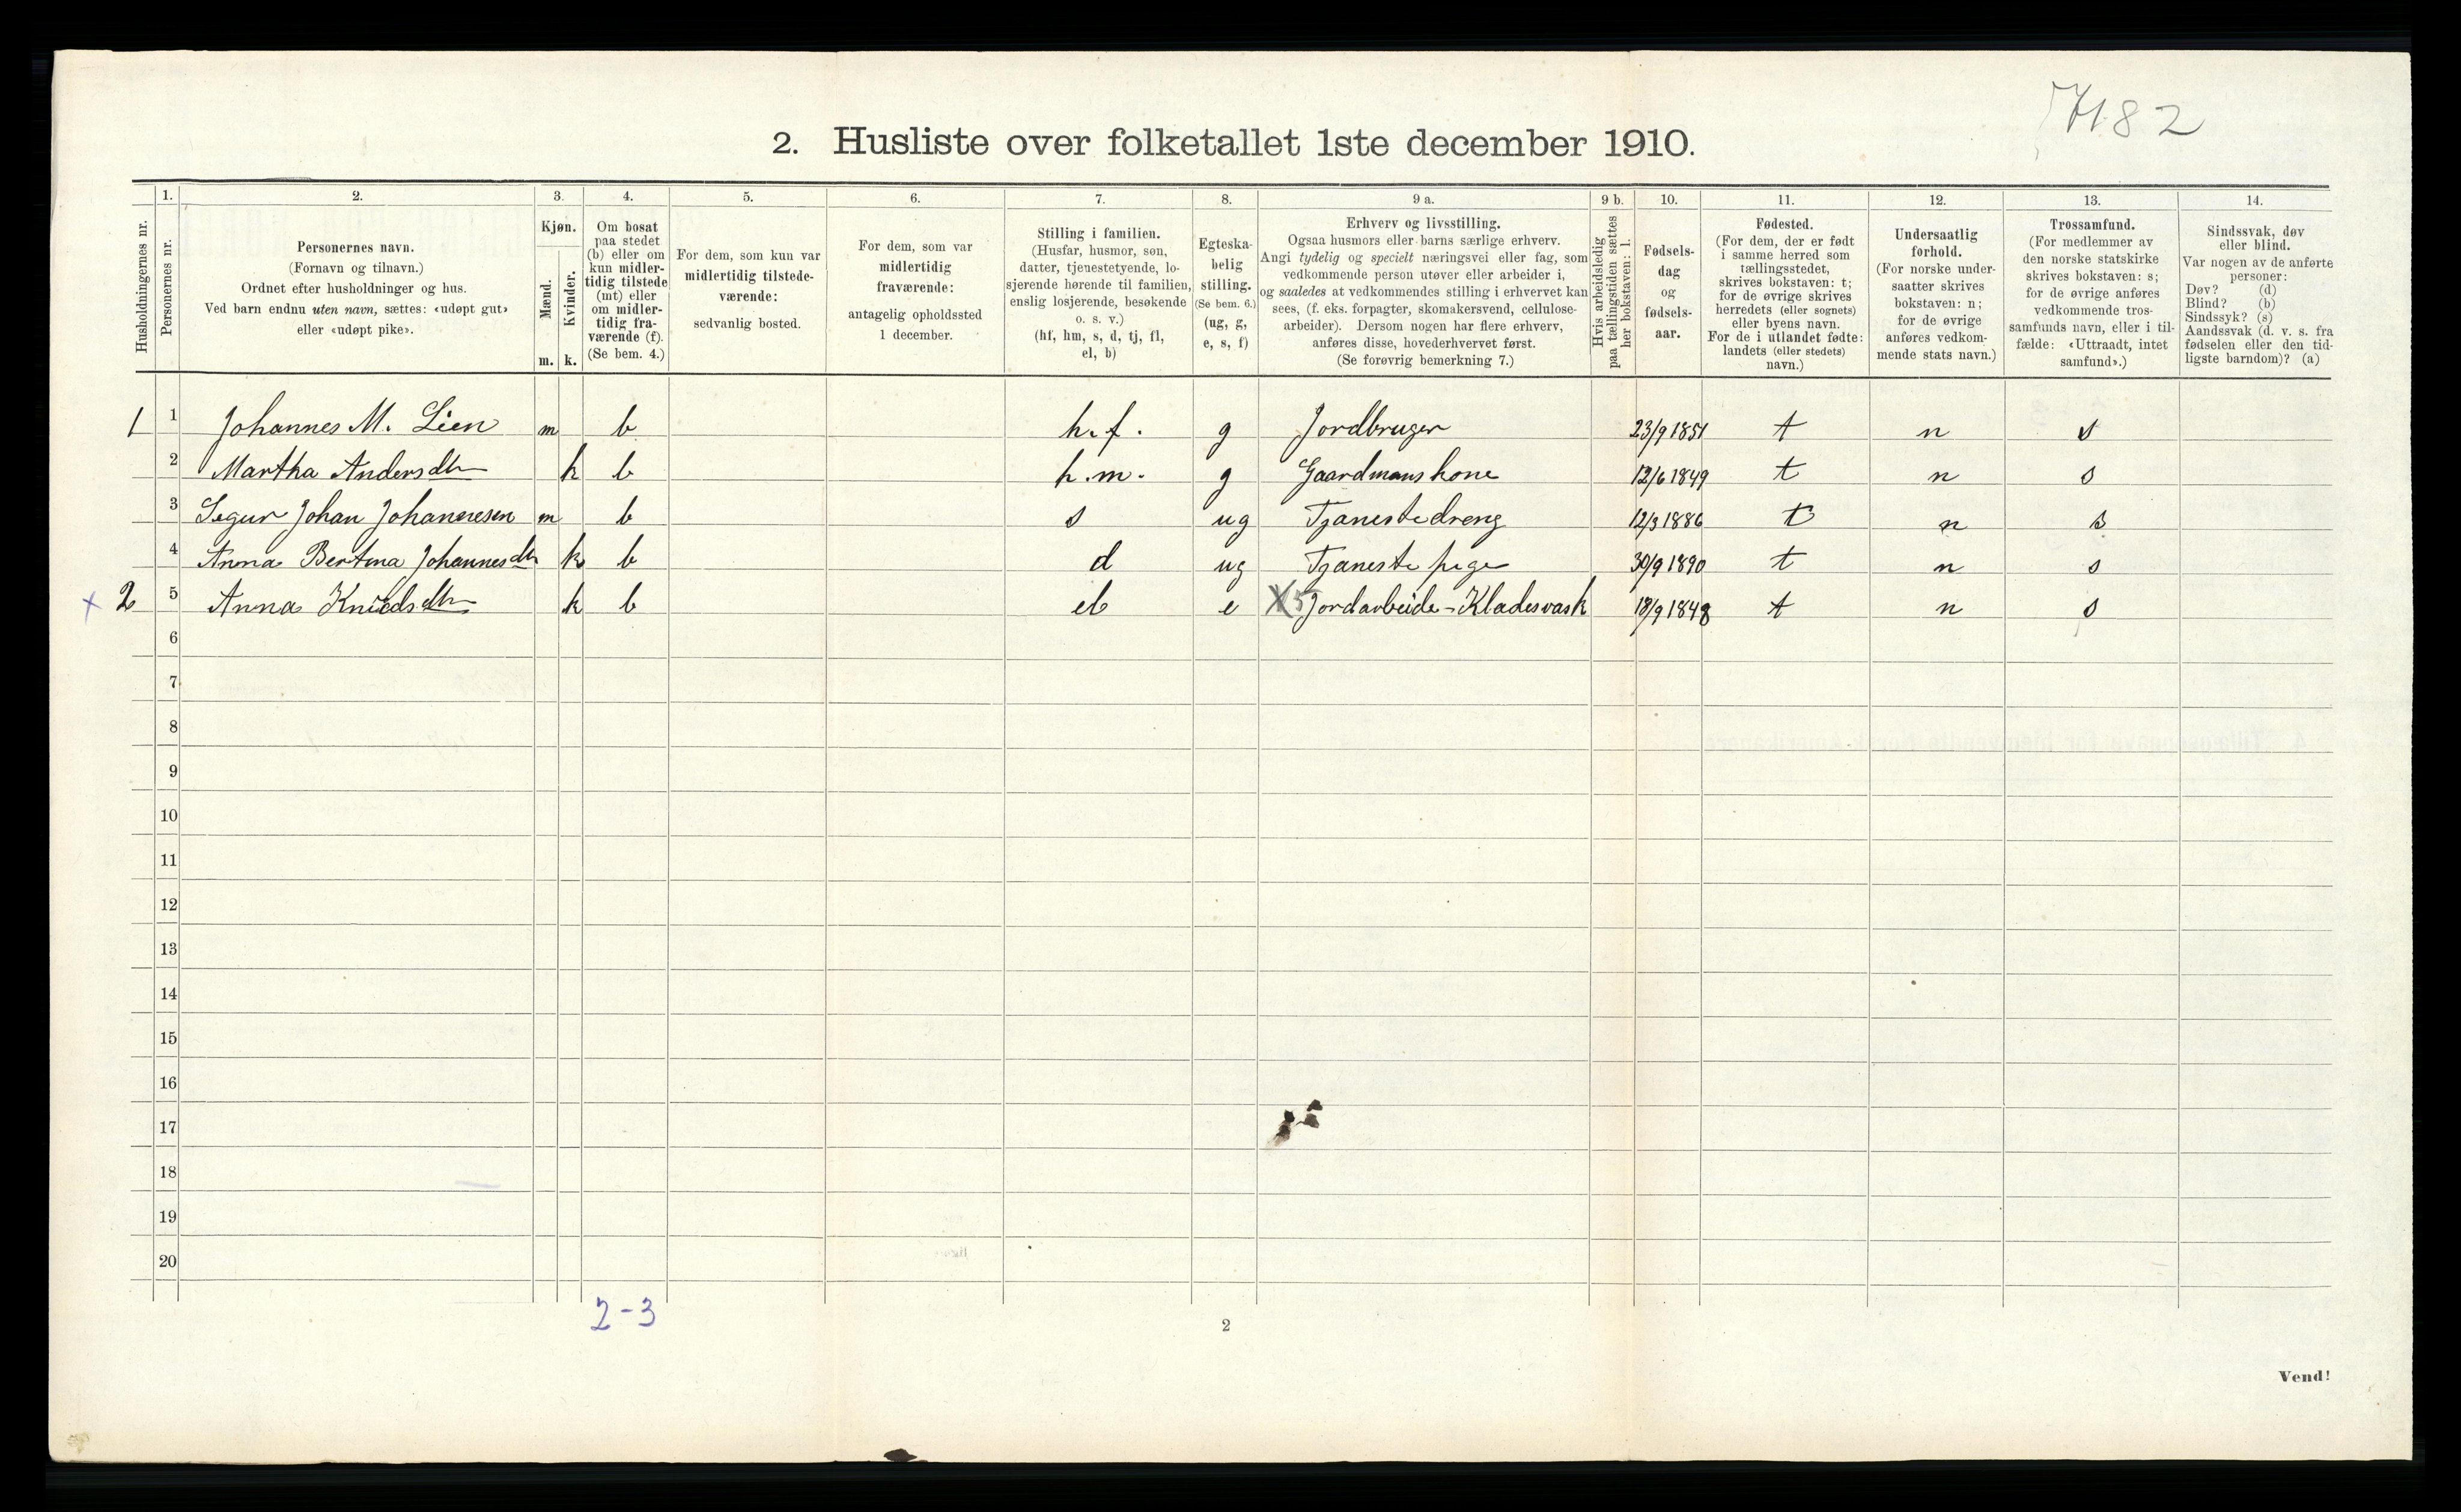 2. Husliste over folketallet 1ste december 1910.
Husholdningernes nr.
1.
Personernes nr.
2.
Personernes navn.
(Fornavn og tilnavn.)
Ordnet efter husholdninger og hus.
Ved barn endnu uten navn, sættes: «udøpt gut»
eller «udøpt pike».
3.
Kjøn.
Mænd.
m.
Kvinder.
k.
4.
Om bosat
paa stedet
(b) eller om
kun midler-
tidig tilstede
(mt) eller
om midler-
tidig fra-
værende (f).
(Se bem. 4.)
5.
For dem, som kun var
midlertidig tilstede-
værende:
sedvanlig bosted.
6.
For dem, som var
midlertidig
fraværende:
antagelig opholdssted
1 december.
7.
Stilling i familien.
(Husfar, husmor, søn,
datter, tjenestetyende, lo-
sjerende hørende til familien,
enslig losjerende, besøkende
o. s. v.)
(hf, hm, s, d, tj, fl,
el, b)
8.
Egteska-
belig
stilling.
(Se bem. 6.)
(ug, g,
e, s, f)
9 a.
Erhverv og livsstilling.
Ogsaa husmors eller barns særlige erhverv.
Angi tydelig og specielt næringsvei eller fag, som
vedkommende person utøver eller arbeider i,
og saaledes at vedkommendes stilling i erhvervet kan
sees, (f. eks. forpagter, skomakersvend, cellulose-
arbeider). Dersom nogen har flere erhverv,
anføres disse, hovederhvervet først.
(Se forøvrig bemerkning 7.)
9 b.
Hvis arbeidsledig
paa tællingstiden sættes
her bokstaven: l.
10.
Fødsels-
dag
og
fødsels-
aar.
11.
Fødested.
(For dem, der er født
i samme herred som
tællingsstedet,
skrives bokstaven: t;
for de øvrige skrives
herredets (eller sognets)
eller byens navn.
For de i utlandet fødte:
landets (eller stedets)
navn.)
12.
Undersaatlig
forhold.
(For norske under-
saatter skrives
bokstaven: n;
for de øvrige
anføres vedkom-
mende stats navn.)
13.
Trossamfund.
(For medlemmer av
den norske statskirke
skrives bokstaven: s;
for de øvrige anføres
vedkommende tros-
samfunds navn, eller i til-
fælde: «Uttraadt, intet
samfund».)
14.
Sindssvak, døv
eller blind.
Var nogen av de anførte
personer:
Døv? (d)
Blind? (b)
Sindssyk? (s)
Aandssvak (d. v. s. fra
fødselen eller den tid-
ligste barndom)? (a)
1 1 Johannes M. Lien m b h.f. g Jordbruger 23/9 1851 t n s
2 Martha Andersdtr k b h.m. g Gaardmanskone 12/6 1849 t n s
3 Segur Johan Johannesen m b s ug Tjanestedreng 12/3 1886 t n s
4 Anna Bertina Johannesdtr k b d ug Tjaneste pige 30/9 1890 t n s
x 2 5 Anna Knudsdtr k b el e X 5 Jordarbeide - Kladesvask 18/9 1848 t n s
6
7
8
9
10
11
12
13
14
15
16
17
18
19
20
2-3
2
Vend!